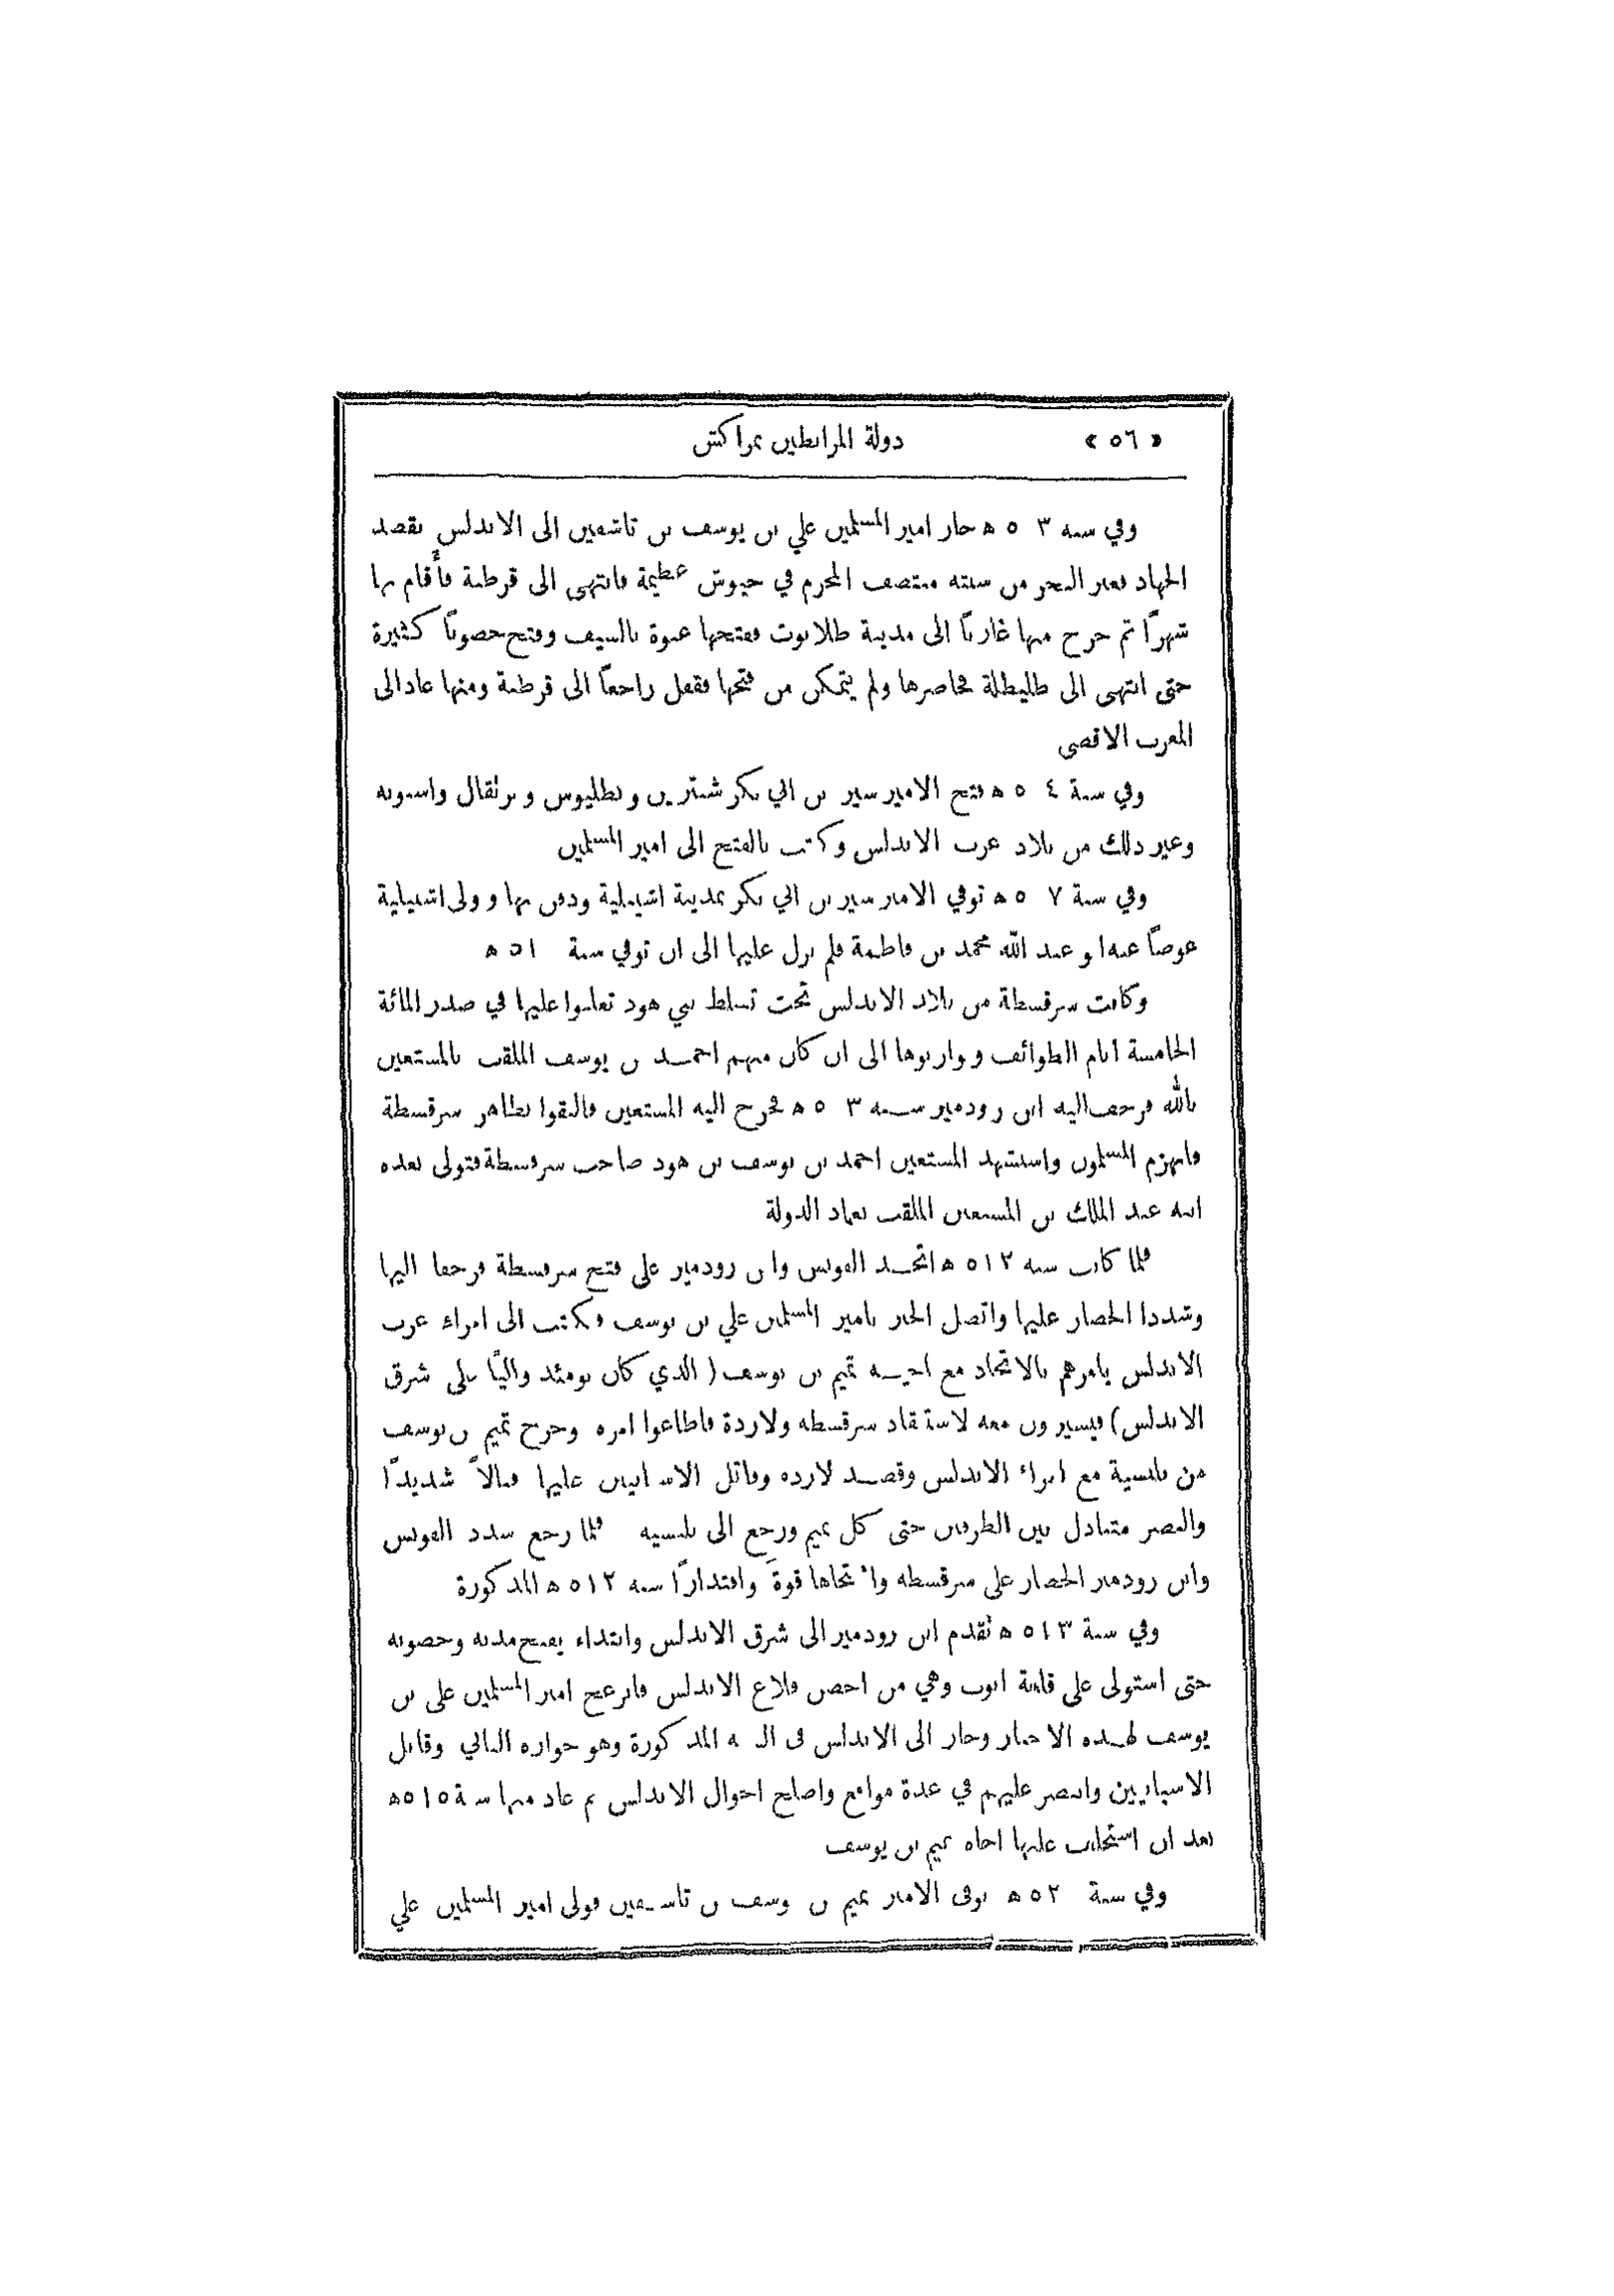 « ٥٦ » دولة المرابطين بمراكش
وفي سنه ٣ ٥ ه جاز امير المسلمين علي بن يوسف بن تاشفين الى الاندلس بقصد
الجهاد فعبر البحر من سبتة منتصف المحرم في جيوش عظيمة فانتهى الى قرطبة فأقام بها
شهرًا ثم خرج منها غازيًا الى مدينة طلابوت ففتحها عنوة بالسيف وفتح حصونًا كثيرة
حتى انتهى الى طليطلة فحاصرها ولم يتمكن من فتحها فقفل راجعًا الى قرطبة ومنها عاد الى
المغرب الاقصى
وفي سنة ٤ ٥ ه فتح الامير سير بن ابي بكر شنترين وبطليوس وبرتقال واشبونه
وغير ذلك من بلاد غرب الاندلس وكتب بالفتح الى امير المسلمين
وفي سنة ٧ ٥ ه توفي الامير سير بن ابي بكر بمدينة اشبيلية ودفن بها وولى اشبيلية
عوضًا عنه ابو عبد الله محمد بن فاطمة فلم يزل عليها الى ان توفي سنة ٥١ ه
وكانت سرقسطة من بلاد الاندلس تحت تسلط بني هود تغلبوا عليها في صدر المائة
الخامسة ايام الطوائف وتوارثوها الى ان كان منهم احمد بن يوسف الملقب بالمستعين
بالله فزحف اليه ابن رودمير سنه ٣ ٥ ه فخرج اليه المستعين فالتقوا بظاهر سرقسطة
فانهزم المسلمون واستشهد المستعين احمد بن يوسف بن هود صاحب سرقسطة فتولى بعده
ابنه عبد الملك بن المستعين الملقب بعماد الدولة
فلما كانت سنه ٥١٢ ه اتحد الفونس وابن رودمير على فتح سرقسطة فزحفا اليها
وشددا الحصار عليها واتصل الخبر بامير المسلمين علي بن يوسف فكتب الى امراء غرب
الاندلس يامرهم بالاتحاد مع اخيه تميم بن يوسف ( الذي كان يومئذ واليًا على شرق
الاندلس) فيسيرون معه لاستنقاد سرقسطه ولاردة فاطاعوا امره وخرج تميم بن يوسف
من بلنسية مع امراء الاندلس وقصد لارده وقاتل الاسبانيين عليها قتالاً شديدًا
والنصر متبادل بين الطرفين حتى كل تميم ورجع الى بلنسيه فلما رجع شدد الفونس
وابن رودمير الحصار على سرقسطه وافتتحاها قوة واقتدارًا سنه ٥١٢ ه المذكورة
وفي سنة ٥١٣ ه تقدم ابن رودمير الى شرق الاندلس وابتداء يفتح مدنه وحصونه
حتى استولى على قلعة ايوب وهي من احصن قلاع الاندلس فانزعج امير المسلمين على بن
يوسف لهذه الاخبار وجاز الى الاندلس في السنه المذكورة وهو جوازه الثاني وقاتل
الاسبانيين وانتصر عليهم في عدة مواقع واصلح احوال الاندلس ثم عاد منها سنة ٥١٥ه
بعد ان استخلف عليها اخاه تميم بن يوسف
وفي سنة ٥٢ ه توفى الامير تميم بن يوسف بن تاشفين فولى امير المسلمين علي